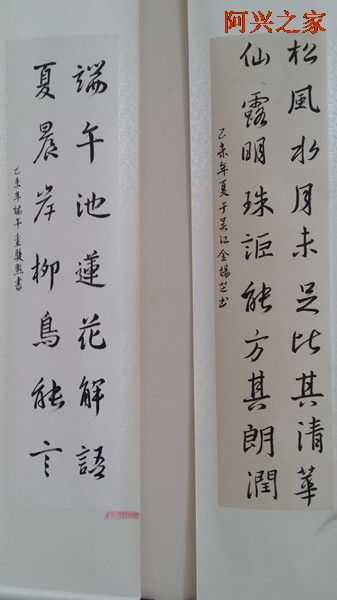 阿兴之家
松風水月未足比其清華
仙露明珠詎能方其朗潤
乙未年夏于吴江金揚芝书
端午池蓮花解語
夏晨岸柳鳥能言
乙未年端午書